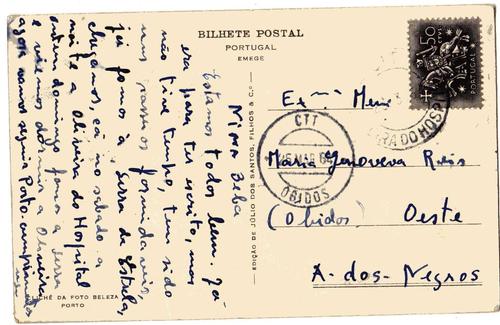 BILHETE POSTAL
PORTUGAL
EMEGE
Minha Beba
Estamos todos bem. Já
era para ter escrito, mas
não tive tempo, tem sido
uns passeios formidáveis,
já fomos à Serra da Estrela,
chegamos, cá no sábado à
noite a Oliveira do Hospital
ontem domingo fomos a Serra
e viemos dormir a Oliveira
agora vamos seguir Porto. cumprimentos
CLICHÉ DA FOTO BELEZA
PORTO
EDIÇÃO DE JÚLIO DOS SANTOS, FILHOS & C.ª
$50
PORTUGAL
EIRA DO HOSPI
CTT
MAR
OBIDOS
Ex.ma
Maria Genoveva Reis
(Obidos) Oeste
A-dos-Negros